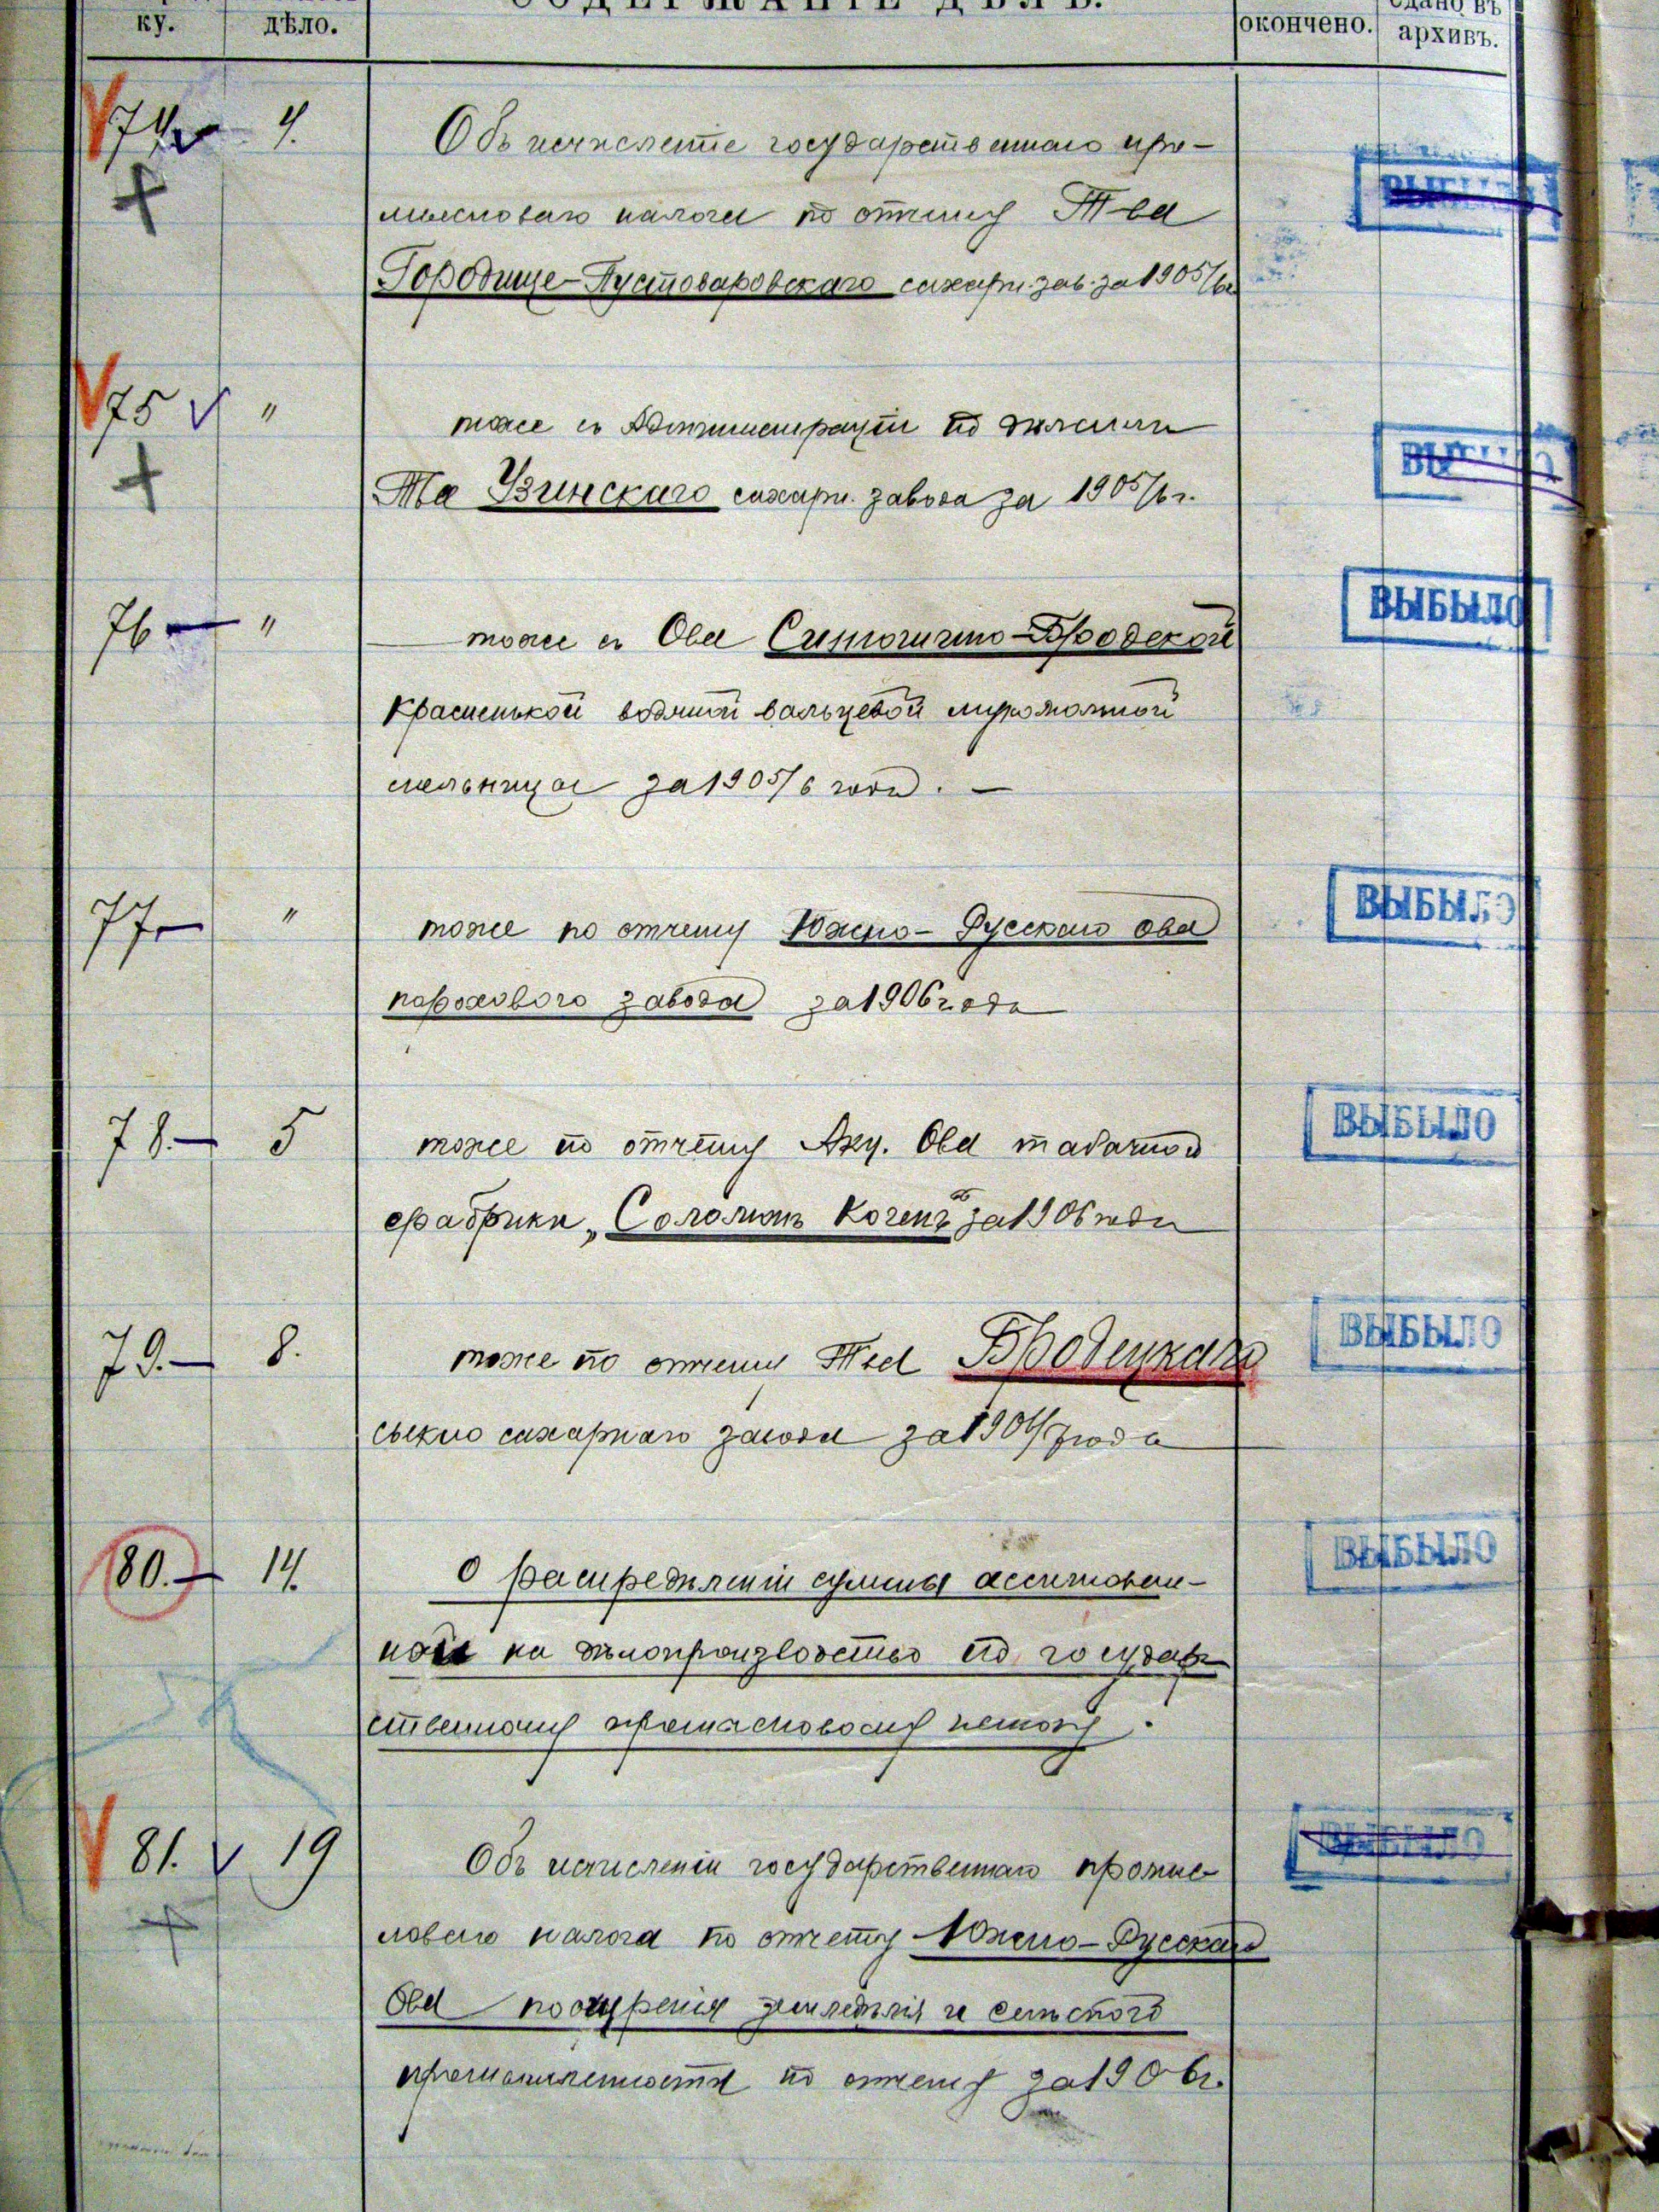 ку. дѣло. СОДЕРЖАНІЕ ДѢЛЪ. окончено. сдано въ архивъ.
74 4. Объ исчисленіе государственнаго про-
мысловаго налога по отчету Т-ва
Городище-Пустоваровскаго сахарн. зав. за 1905/6г.
ВЫБЫЛО
75 " тоже съ Администраціи по дѣламъ
Тва Узинскаго сахарн. завода за 1905/6 г.
ВЫБЫЛО
76 " тоже съ Ова Ситогично-Бродской
Красненькой водяной вальцевой мукомольной
мельницы за 1905/6 года. —
ВЫБЫЛО
77 " тоже по отчету Южно-Русскаго Ова
порохового завода за 1906 года
ВЫБЫЛО
78. 5 тоже по отчету Акц. Ова табачной
фабрики „Соломонъ Когенъ" за 1906 года
ВЫБЫЛО
79. 8. тоже по отчету Тва Бродецкаго
свекло сахарнаго завода за 1906/7 года
ВЫБЫЛО
80. 14. О распредѣленіи суммы ассигнован-
ной на дѣлопроизводство по государ
ственному промысловому налогу.
ВЫБЫЛО
81. 19 Объ исчисленіи государственнаго промыс
ловаго налога по отчету Южно-Русскаго
Ова поощренія земледѣлія и сельского
промышленности по отчету за 1906г.
ВЫБЫЛО